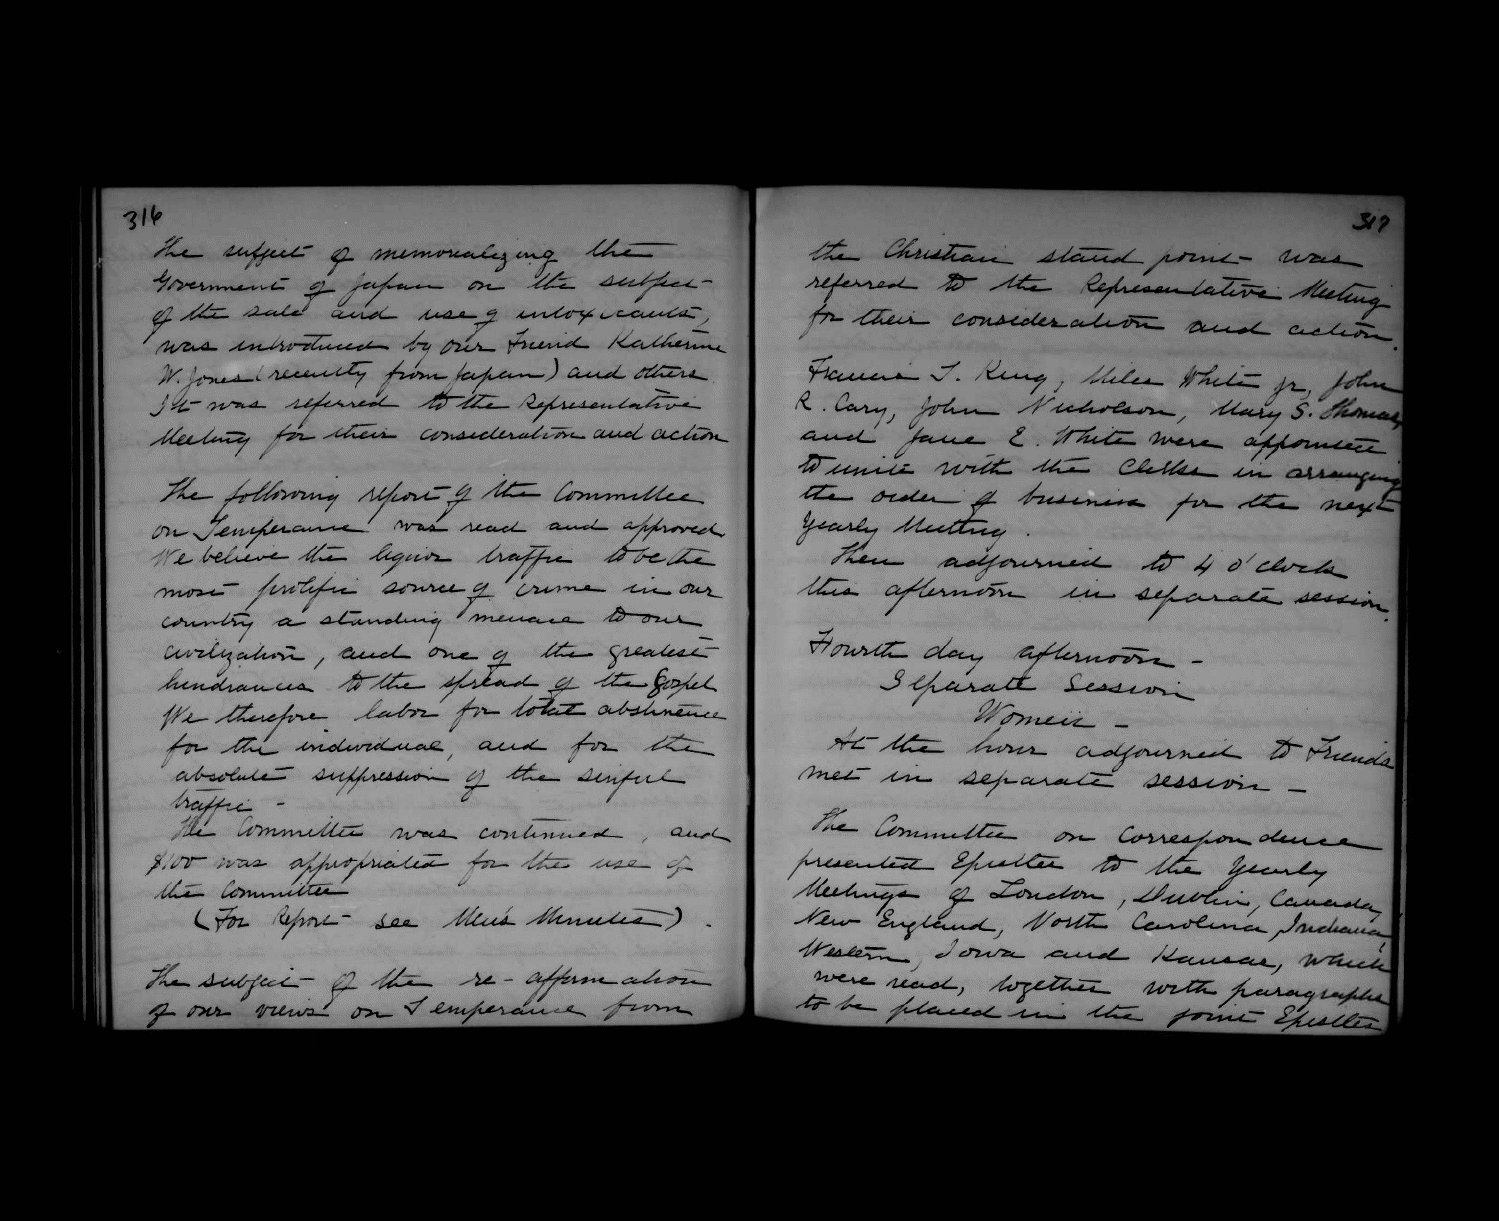 316
The subject of memorializing the
Government of Japan on the subject
of the sale and use of intoxicants,
was introduced by our Friend Katherine
W. Jones (recently from Japan) and others
It was referred to the Representative
Meeting for their consideration and action
The following report of the Committee
on Temperance was read and approved.
We believe the liquor traffic to be the
most prolific source of crime in our
country a standing menace to our
civilization, and one of the greatest
hindrances to the spread of the Gospel
We therefore labor for total abstinence
for the individual, and for the
absolute suppression of the sinful
traffic -
The Committee was continued, and
$100 was appropriated for the use of
the Committee
(For Report see Men's Minutes).
The subject of the re-affirmation
of our views on Temperance from
317
the Christian stand point was
referred to the Representative Meeting
for their consideration and action.
Francis T. King, Miles White jr, John
R. Cary, John Nicholson, Mary S. Thomas,
and Jane E. White were appointed
to unite with the Clerks in arranging
the order of business for the next
Yearly Meeting.
Then adjourned to 4 o'clock
this afternoon in separate session.
Fourth day afternoon -
Separate Session
Women -
At the hour adjourned to Friends
met in separate session -
The Committee on Correspondence
presented Epistles to the Yearly
Meetings of London, Dublin, Canada,
New England, North Carolina, Indiana,
Western, Iowa and Kansas, which
were read, together with paragraphs
to be placed in the joint Epistles